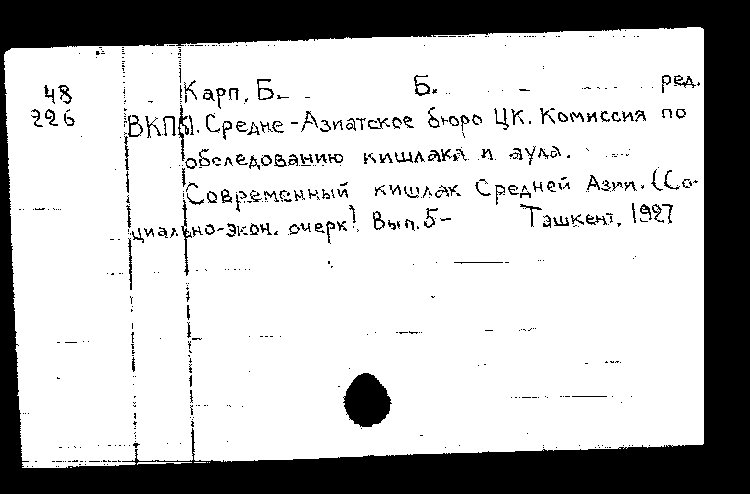 48 Карп, Б. Б. ред.
226 ВКП(б). Средне-Азиатское бюро ЦК. Комиссия по
обследованию кишлака и аула.
Современный кишлак Средней Азии. (Со-
циально-экон. очерк). Вып. 5- Ташкент, 1927